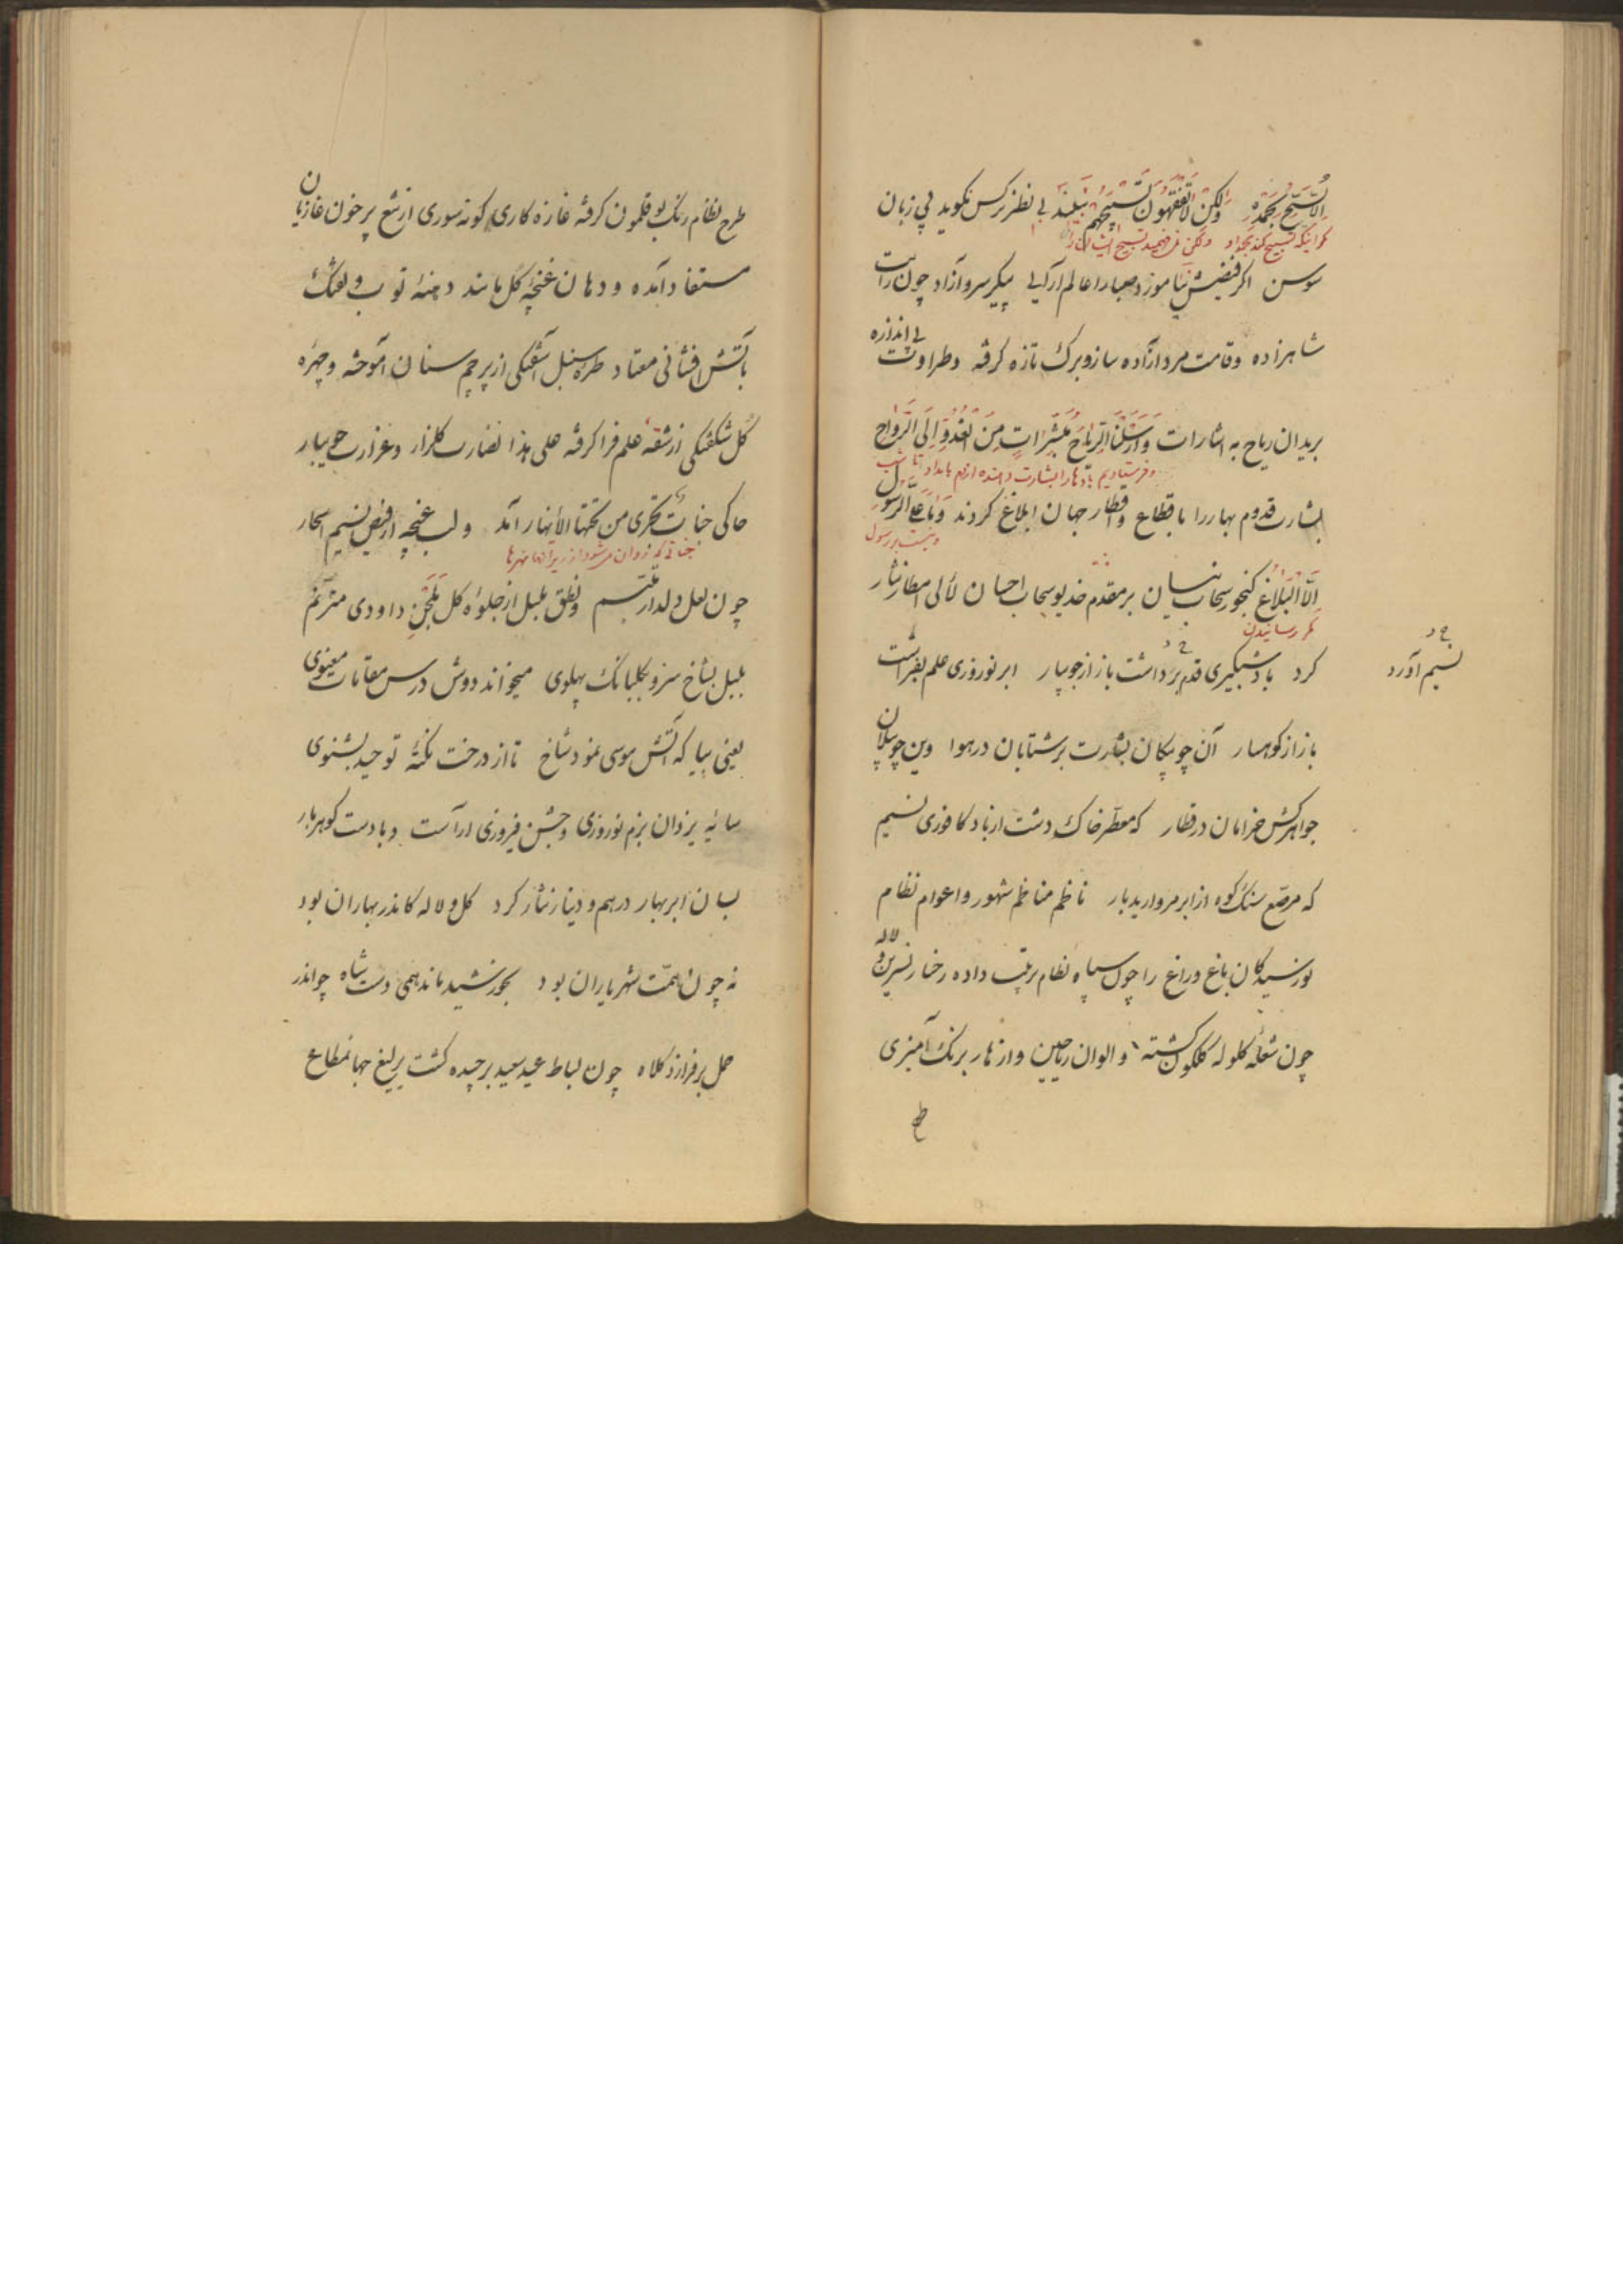 اِلّا یُسَبِّحُ بِحَمْدِهِ وَلکِنْ لاتَفْقَهُونَ تَسْبیحَهُمْ نبیند بی نظر نرکس نکوید بی زبان
مکر اینکه تسبیح کند بحمد او ولکن نمی فهمید تسبیح ایشان را
سوسن اکر فیضش نیاموزد صبا را عالم آرایی پیکر سرو آزاد چون رایت
شاهزاده وقامت مرد آزاده ساز وبرک تازه کرفته وطراوت بی اندازه
بریدان ریاح به اشارات وَاَرْسَلْنَا الرِّیاحَ مُبَشِّراتٍ مِنَ الْغُدُوِّ اِلَی الرَّواحِ
وفرستادیم بادها را بشارت دهنده از بامداد تا شب
بشارت قدوم بهار را باقطاع واقطار جهان ابلاغ کردند وَماعَلَی الرَّسُولِ
ونیست بر رسول
اِلَّا الْبَلاغُ کنجور سحاب نیسان بر مقدم خدیو سحاب احسان لآلی امطار نثار
مکر رسانیدن
کرد باد شبکیری قدم برداشت باز از جویبار ابر نوروزی علم بفراشت
نسیم آورد
باز از کوهسار آن چو پیکان بشارت بر شتابان در هوا وین چو پیلان
جواهرکش خرامان در قطار که معطّر خاک دشت از باد کافوری نسیم
که مرصّع سنک کوه از ابر مروارید بار ناظم مناظم شهور واعوام نظام
نورسیدکان باغ وراغ را چون سپاه نظام ترتیب داده رخسار نسرین ولاله
چون شعله کلوله کلکون کشته والوان ریاحین وازهار برنک آمیزی
طرح
طرح نظام رنک بوقلمون کرفته غازه کاری کونه سوری از تیغ پر خون غازیان
مستفاد آمده ودهان غنچه کل مانند دهنه توپ وتفنک
بآتش افشانی معتاد طره سنبل آشفتکی از پرچم سنان آموخته وچهره
کل شکفتکی از شقه علم فرا کرفته علی هذا نضارت کلزار وغزارت جویبار
حاکی جنات تجری من تحتها الأنهار آمد ولب غنچه از فیض نسیم اسحار
جناتی که روان میشود از زیر آنها نهرها
چون لعل دلدار متبسّم ونطق بلبل از جلوه کل بلحن داودی مترنم
بلبل بشاخ سرو بکلبانک پهلوی میخواند دوش درس مقامات معنوی
یعنی بیا که آتش موسی نمود شاخ تا از درخت نکتهٔ توحید بشنوی
سایه یزدان بزم نوروزی وجشن فیروزی آراست وبا دست کوهربار
بسان ابر بهار درهم ودینار نثار کرد کل ولاله کاندر بهاران بود
نه چون همّت شهریاران بود بخورشید ماند همی دست شاه چو اندر
حمل بر فرازد کلاه چون بساط عید سعید برچیده کشت یرلیغ جهانمطاع